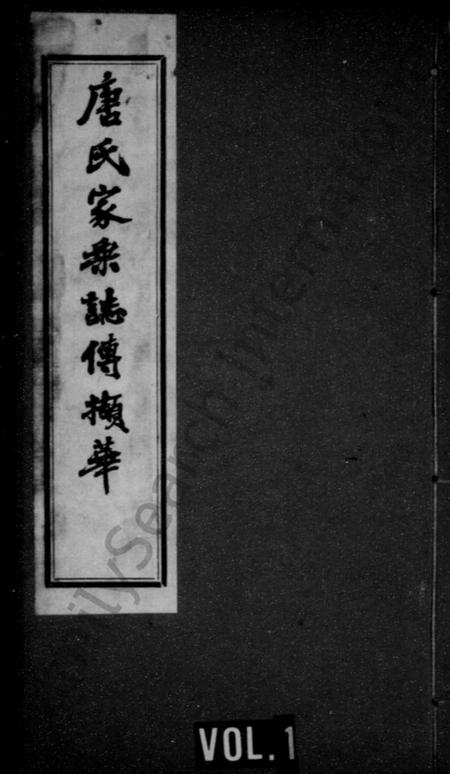 唐氏家乘誌傳擷華
FamilySearch International
VOL.1